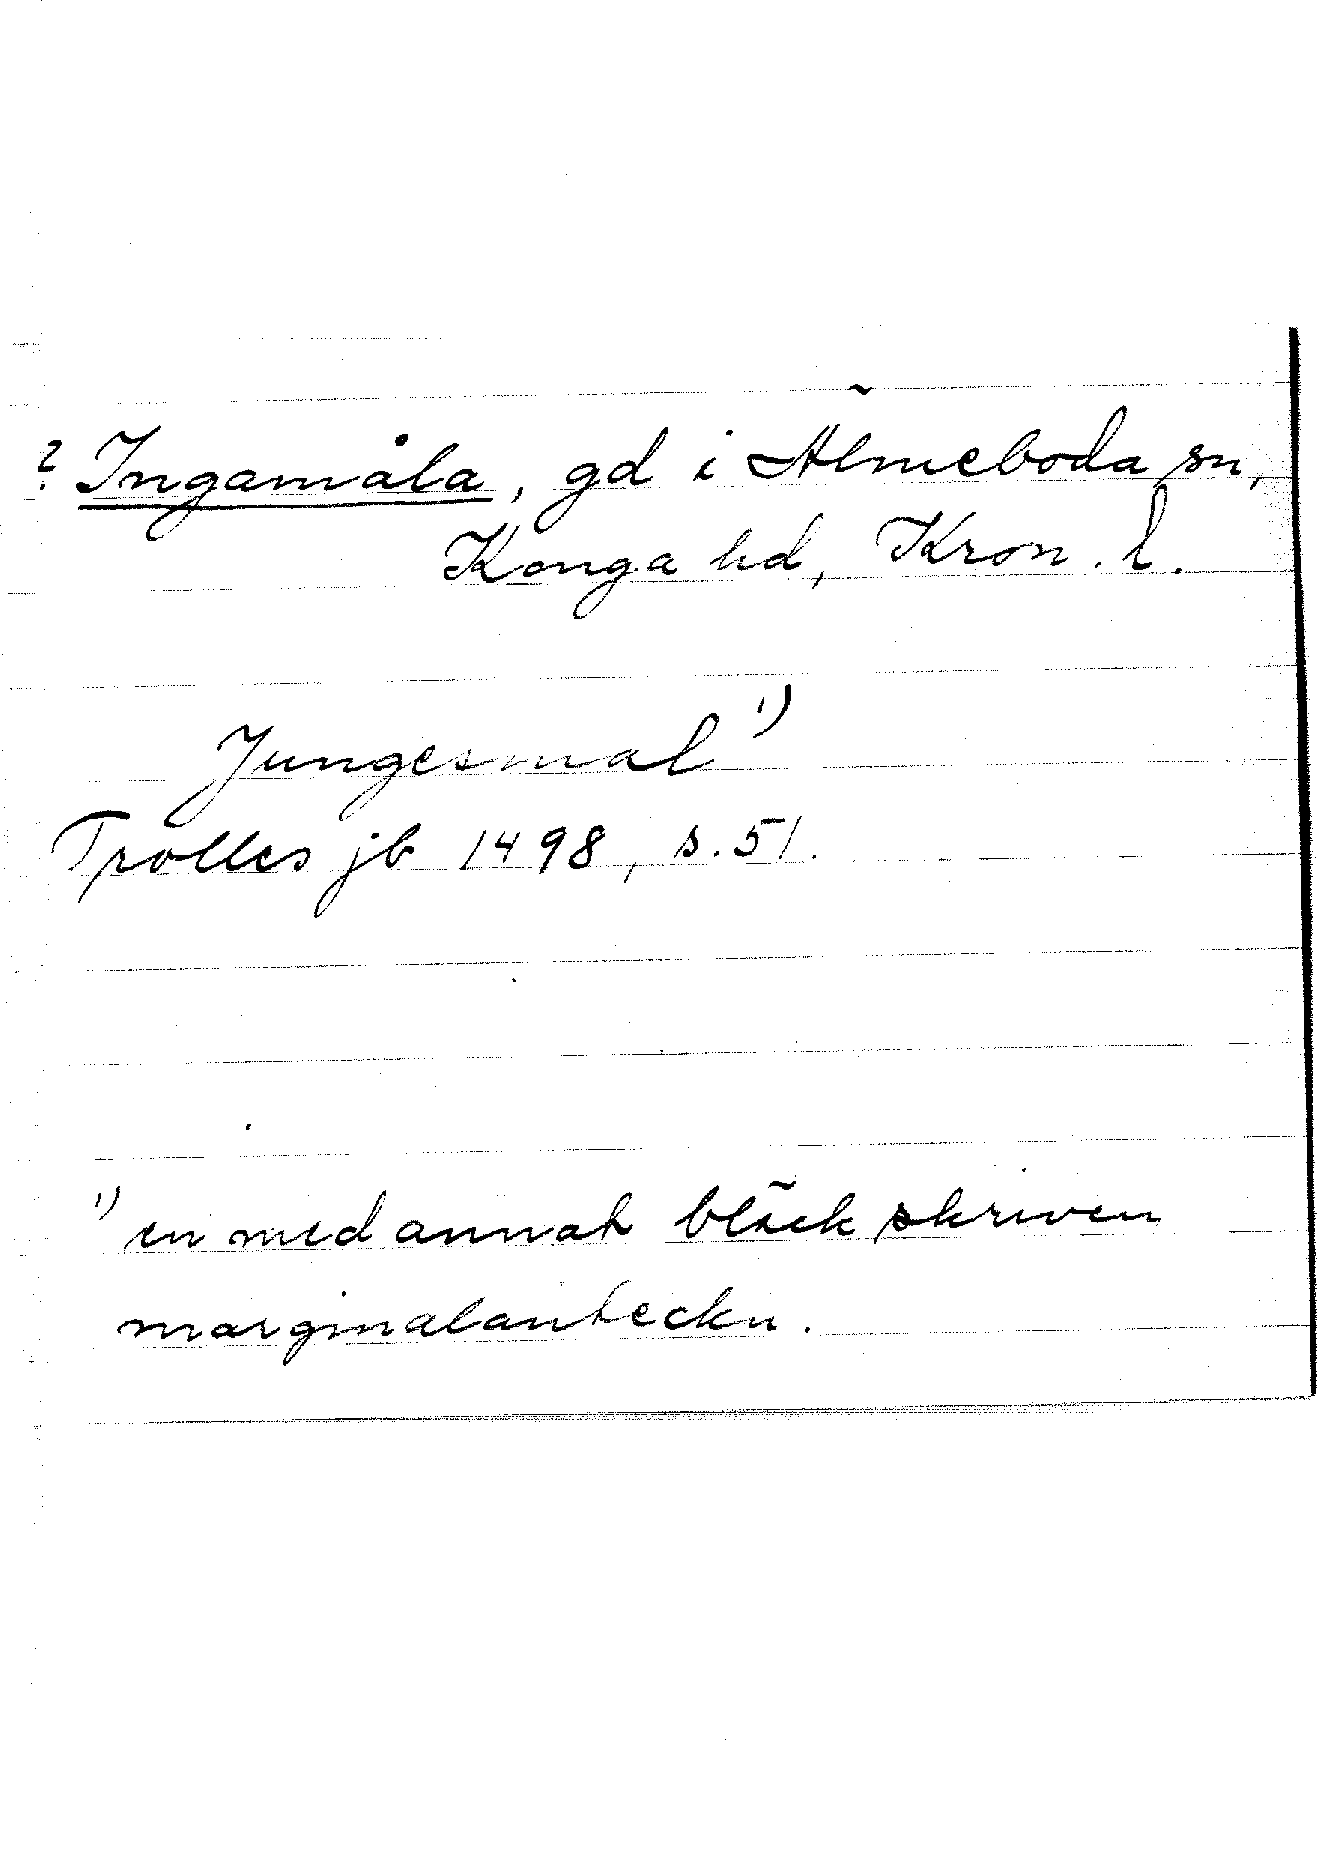 ? Ingamåla, gd i Älmeboda sn,
Konga hd, Kron. l.
Jungesmal 1)
Trolles jb 1498, s. 51.
1) en med annat bläck skriven
marginalanteckn.